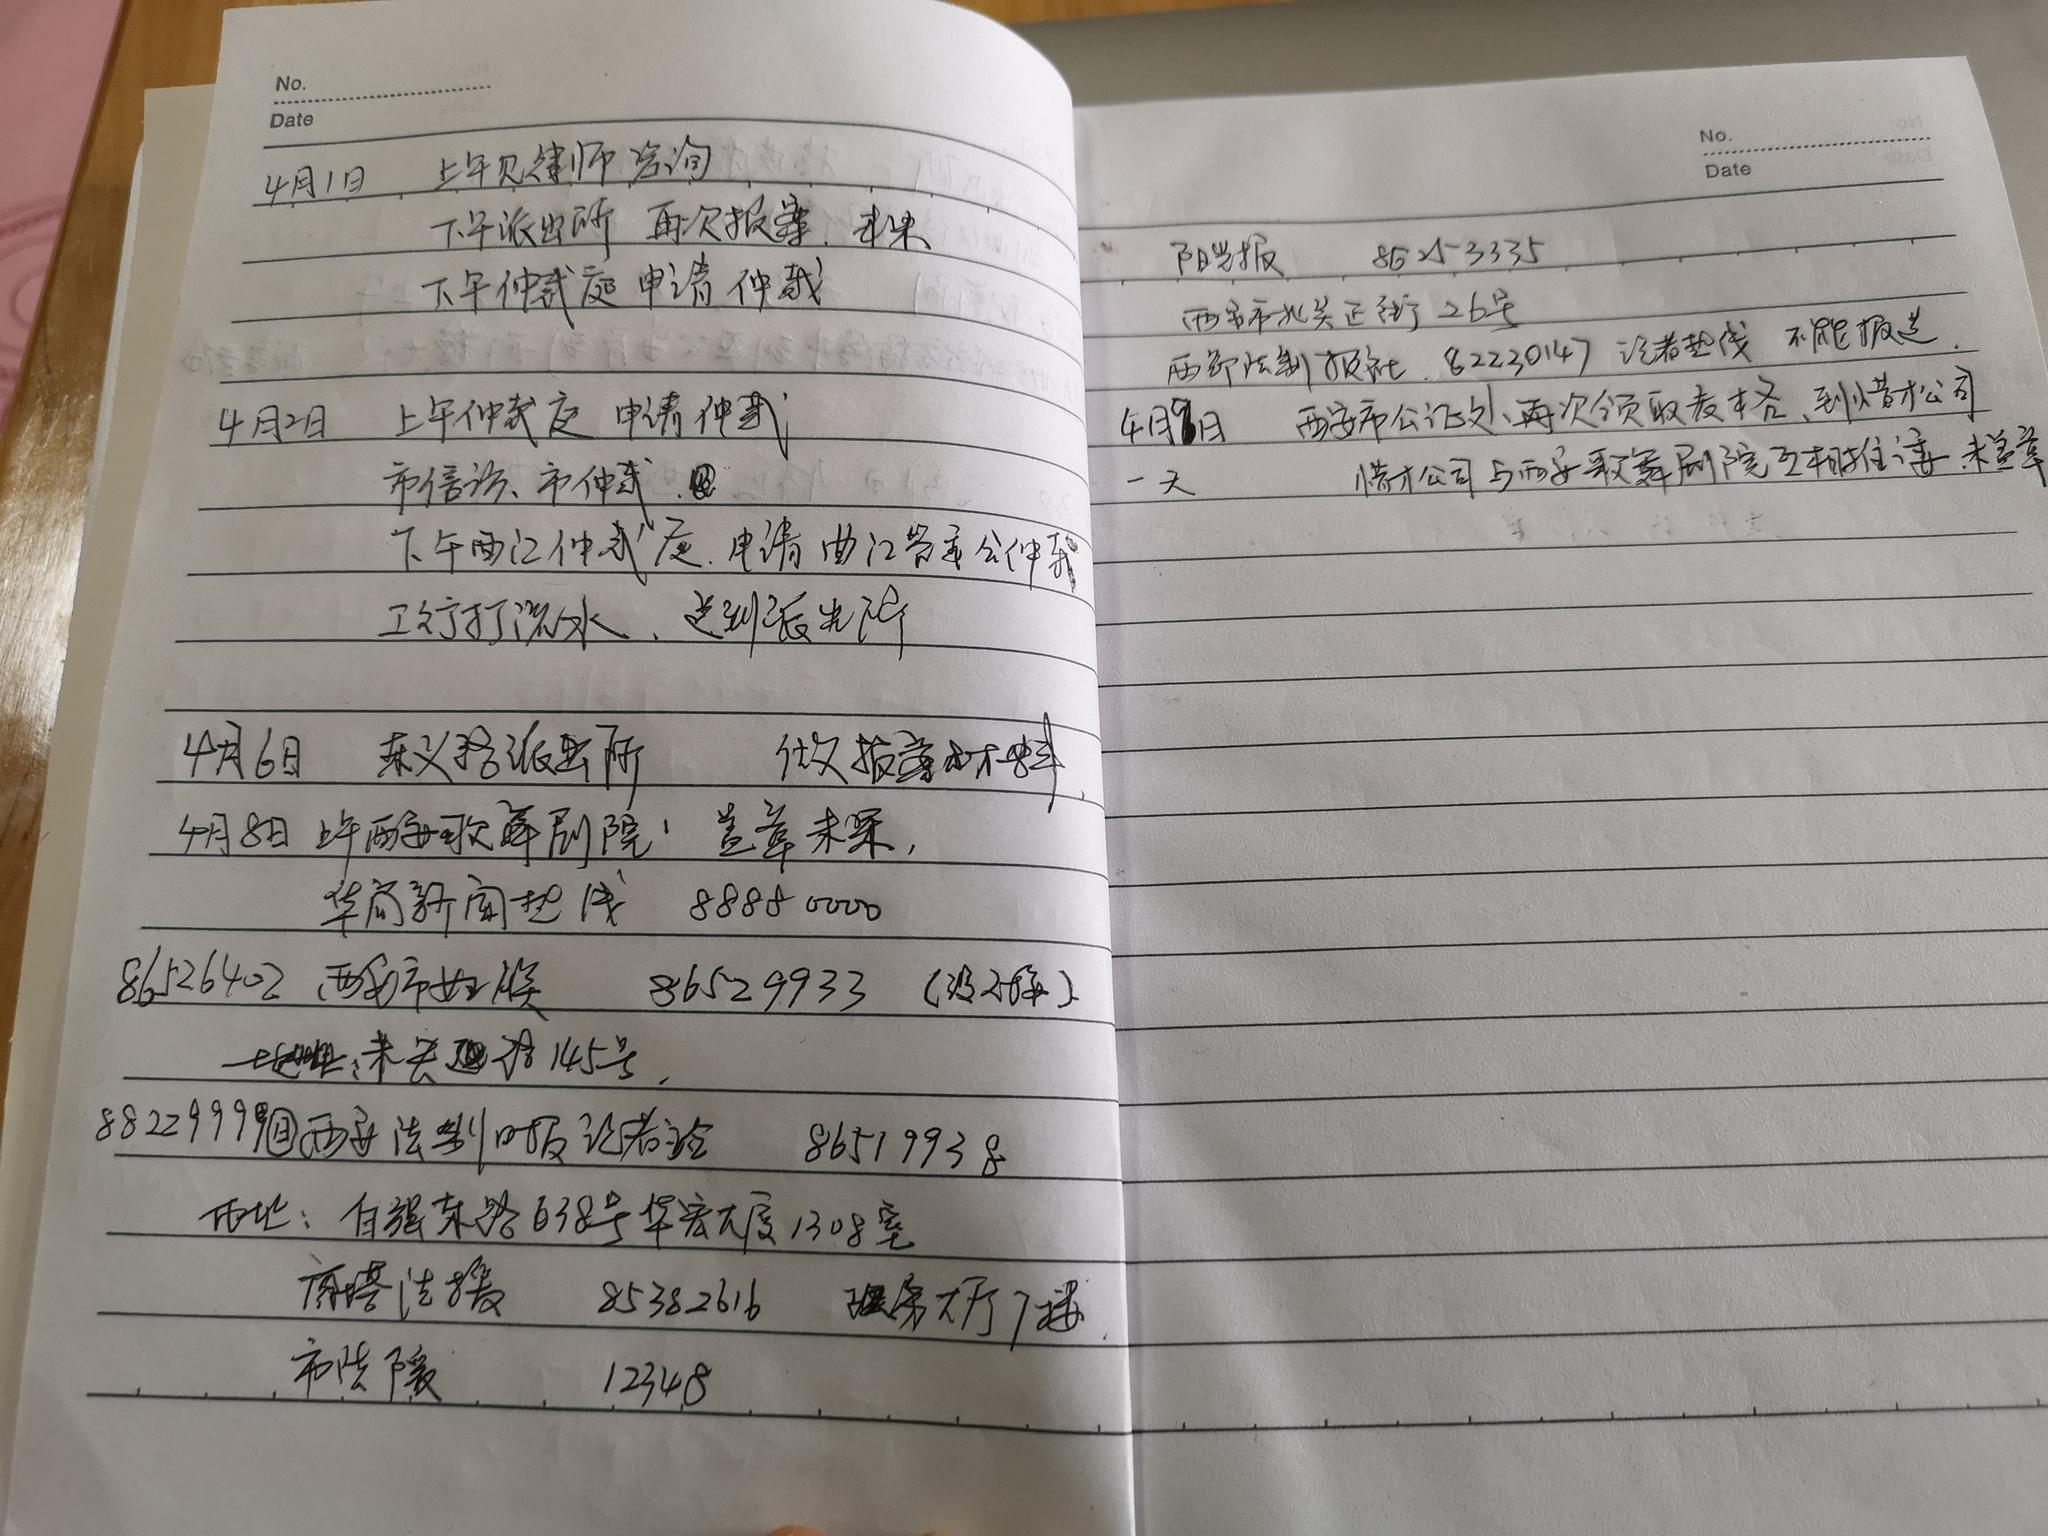 No.
Date
4月1日 上午见律师咨询
下午派出所 再次报案、未果
下午仲裁庭 申请仲裁
4月2日 上午仲裁庭 申请仲裁
市信访、市仲裁
下午曲江仲裁庭、申请曲江管委会仲裁
工行打流水、送到派出所
4月6日 东义路派出所 报案材料
4月8日 上午西安歌舞剧院, 盖章未果,
华商新闻热线 88880000
86526402 西安市妇联 86529933
145号
西安法制日报记者站 86519938
地址: 自强东路638号华宏大厦1308室
雁塔法援 85382616 大厅7楼
市法援 12348
No.
Date
阳光报 86253335
西安市北关正街26号
西部法制报社 82230147 记者热线 不能报道.
4月9日 西安市公证处、再次领取表格、到惜才公司
一天 惜才公司与西安歌舞剧院互相推诿、未盖章